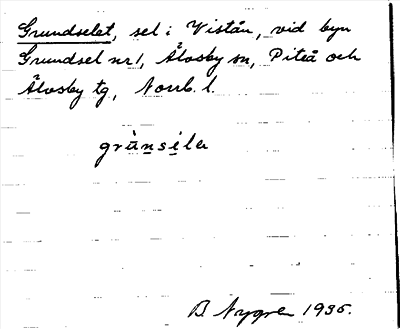 Grundselet, sel i Vistån, vid byn
Grundsel nr 1, Älvsby sn, Piteå och
Älvsby tg, Norrb. l.
grùnséla
B. Nygren 1935.